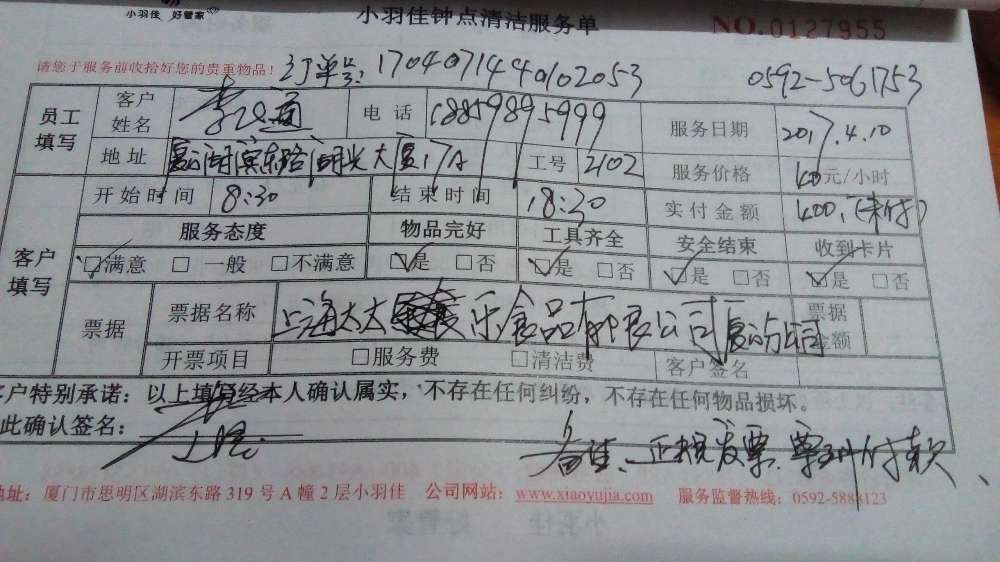 小羽佳 好管家
小羽佳钟点清洁服务单 NO.0127955
请您于服务前收拾好您的贵重物品! 订单号: 17040714440102053 0592-5061753
员工填写 客户姓名 李 通 电话 18859895999 服务日期 2017.4.10
地址 厦门湖滨东路 阳光大厦17A 工号 2102 服务价格 40元/小时
开始时间 8:30 结束时间 18:30 实付金额 400,(未付)
客户填写 服务态度 物品完好 工具齐全 安全结束 收到卡片
☑满意 □一般 □不满意 ☑是 □否 ☑是 □否 ☑是 □否 ☑是 □否
票据 票据名称 上海太太乐食品有限公司厦门分公司 票据金额
开票项目 □服务费 □清洁费 客户签名
客户特别承诺:以上填写经本人确认属实,不存在任何纠纷,不存在任何物品损坏。
此确认签名:
备注、正规发票、票到付款、
地址:厦门市思明区湖滨东路319号A幢2层小羽佳 公司网站:www.xiaoyujia.com 服务监督热线:0592-5888123